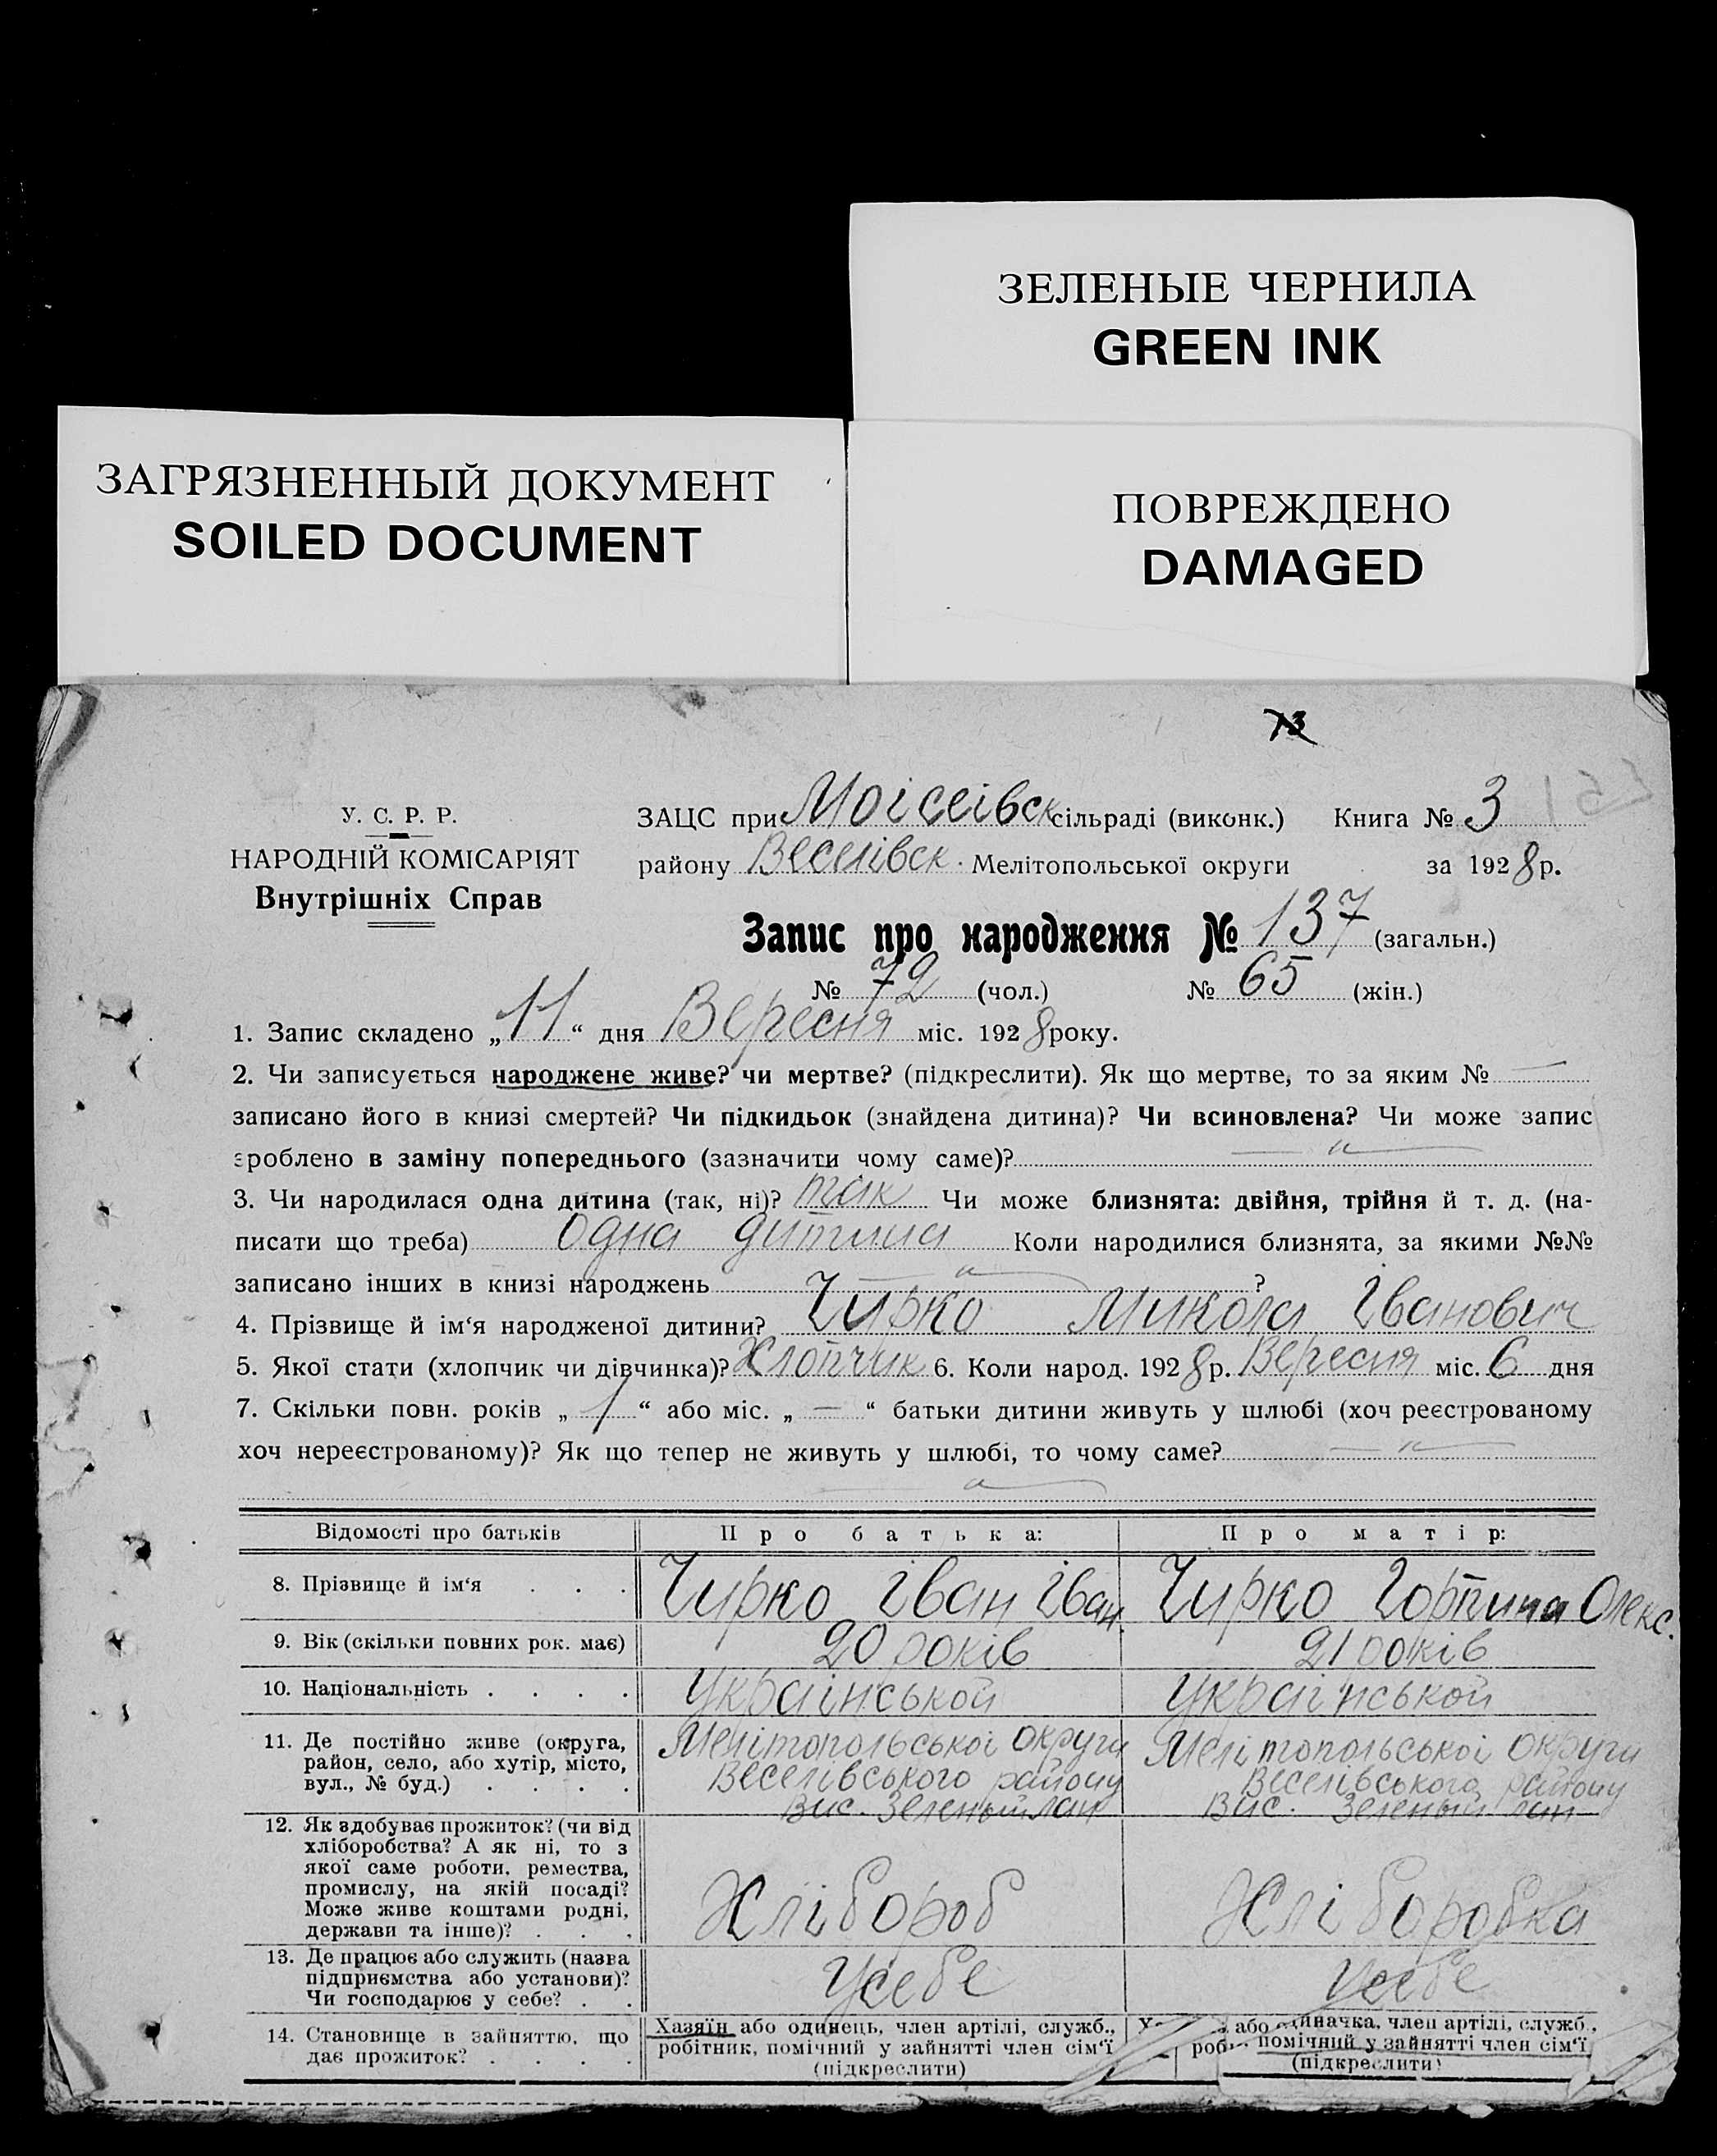 ЗЕЛЕНЫЕ ЧЕРНИЛА
GREEN INK
ЗАГРЯЗНЕННЫЙ ДОКУМЕНТ
SOILED DOCUMENT
ПОВРЕЖДЕНО
DAMAGED
73
У. С. Р. Р.
НАРОДНІЙ КОМІСАРІЯТ
Внутрішніх Справ
ЗАЦС при Моісеівск сільраді (виконк.) Книга № 3
району Веселівск. Мелітопольської округи за 1928 р.
Запис про народження № 137 (загальн.)
№ 72 (чол.) № 65 (жін.)
1. Запис складено „11“ дня Вересня міс. 1928 року.
2. Чи записується народжене живе? чи мертве? (підкреслити). Як що мертве, то за яким № —
записано його в книзі смертей? Чи підкидьок (знайдена дитина)? Чи всиновлена? Чи може запис
зроблено в заміну попереднього (зазначити чому саме)? — „ —
3. Чи народилася одна дитина (так, ні)? так Чи може близнята: двійня, трійня й т. д. (на-
писати що треба) Одна дитина Коли народилися близнята, за якими №№
записано інших в книзі народжень — „ — ?
4. Прізвище й ім‘я народженої дитини? Чирко Микола Іванович
5. Якої стати (хлопчик чи дівчинка)? Хлопчик 6. Коли народ. 1928 р. Вересня міс. 6 дня
7. Скільки повн. років „1“ або міс. „—“ батьки дитини живуть у шлюбі (хоч реєстрованому
хоч нереєстрованому)? Як що тепер не живуть у шлюбі, то чому саме? — „ —
— „ —
Відомості про батьків Про батька: Про матір:
8. Прізвище й ім‘я . . . Чирко Іван Іван. Чирко Горпина Олекс.
9. Вік (скільки повних рок. має) 20 років 21 років
10. Національність . . . . Української Української
11. Де постійно живе (округа,
район, село, або хутір, місто,
вул., № буд.) . . . .
Мелітопольської округи
Веселівського району
Вис. Зеленый лан
Мелітопольської округи
Веселівського району
Вис. Зеленый лан
12. Як здобуває прожиток? (чи від
хліборобства? А як ні, то з
якої саме роботи, ремества,
промислу, на якій посаді?
Може живе коштами родні,
держави та інше)? . . .
Хлібороб
Хліборобка
13. Де працює або служить (назва
підприємства або установи)?
Чи господарює у себе? . .
Усебе
Усебе
14. Становище в зайняттю, що
дає прожиток? . . . .
Хазяїн або одинець, член артілі, служб.,
робітник, помічний у зайнятті член сім‘ї
(підкреслити)
або одиначка, член артілі, служб.,
роб помічний у зайнятті член сім‘ї
(підкреслити)